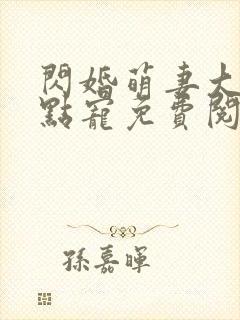 閃婚萌妻大
點寵免費閱
孫嘉暉